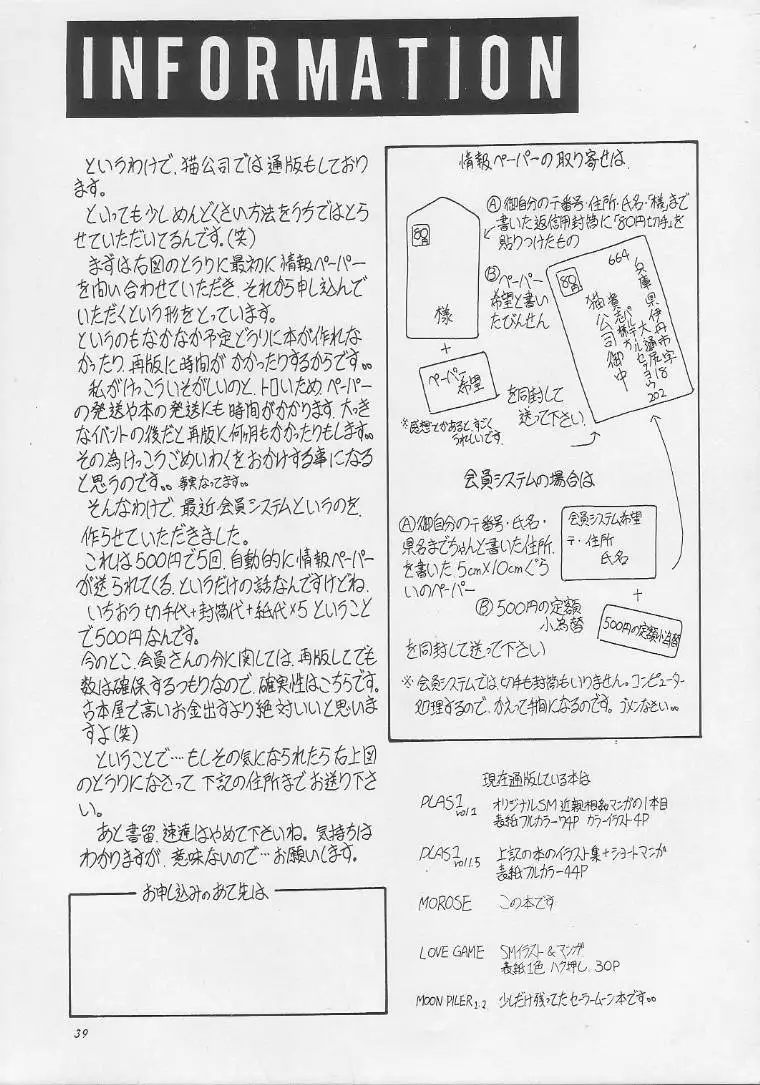 INFORMATION
というわけで、猫公司では通版もしており
ます。
といっても少しめんどくさい方法をうちではとら
せていただいてるんです。(笑)
まずは右図のとうりに最初に情報ペーパー
を問い合わせていただき、それから申し込んで
いただくという形をとっています。
というのもなかなか予定どうりに本が作れな
かったり、再版に時間がかかったりするからです。。
私がけっこういそがしいのと、トロいため、ペーパー
の発送や本の発送にも時間がかかります。大っき
なイベントの後だと再版に何ヶ月もかかったりもします。。
その為けっこうごめいわくをおかけする事になる
と思うのです。。事実なってます。。
そんなわけで、最近会員システムというのを、
作らせていただきました。
これは500円で5回、自動的に情報ペーパー
が送られてくる、というだけの話なんですけどね、
いちおう切手代+封筒代+紙代×5ということ
で500円なんです。
今のとこ、会員さんの分に関しては、再版してでも
数は確保するつもりなので、確実性はこちらです。
古本屋で高いお金出すより絶対いいと思いま
すよ(笑)
ということで‥‥もしその気になられたら右上図
のとうりになさって下記の住所までお送り下さ
い。
あと書留、速達はやめて下さいね。気持ちは
わかりますが、意味ないので…お願いします。
お申し込みのあて先は
39
情報ペーパーの取り寄せは
Ⓐ御自分の〒番号・住所・氏名・「様」まで
書いた返信用封筒に「80円切手」を
貼りつけたもの
80
様
+
ペーパー
希望
Ⓑペーパー
希望と書い
たびんせん
を同封して
送って下さい
※感想とかあると、すごく
うれしいです。
80
664
兵庫県伊丹市
大鹿字
202
猫公司御中
会員システムの場合は
Ⓐ御自分の〒番号・氏名・
県名までちゃんと書いた住所、
を書いた、5cm×10cmぐら
いのペーパー
会員システム希望
〒・住所
氏名
+
Ⓑ500円の定額
小為替
500円の定額小為替
を同封して送って下さい
※会員システムでは、切手も封筒もいりません。コンピューター
処理するので、かえって手間になるのです。ゴメンなさい。。
現在通版している本は
PLAS1 vol.2 オリジナルSM近親相姦マンガの1本目
表紙フルカラー74P カラーイラスト4P
PLAS1 vol1.5 上記の本のイラスト集+ショートマンガ
表紙フルカラー44P
MOROSE この本です
LOVE GAME SMイラスト&マンガ
表紙1色 ハク押し、30P
MOON PILER 1.2 少しだけ残ってたセーラームーン本です。。